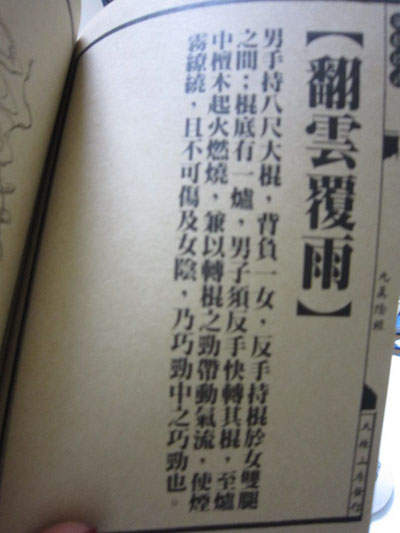 【翻雲覆雨】
男手持八尺大棍，背負一女，反手持棍於女雙腿
之間；棍底有一爐，男子須反手快轉其棍，至爐
中檀木起火燃燒，兼以轉棍之勁帶動氣流，使煙
霧繚繞，且不可傷及女陰，乃巧勁中之巧勁也。